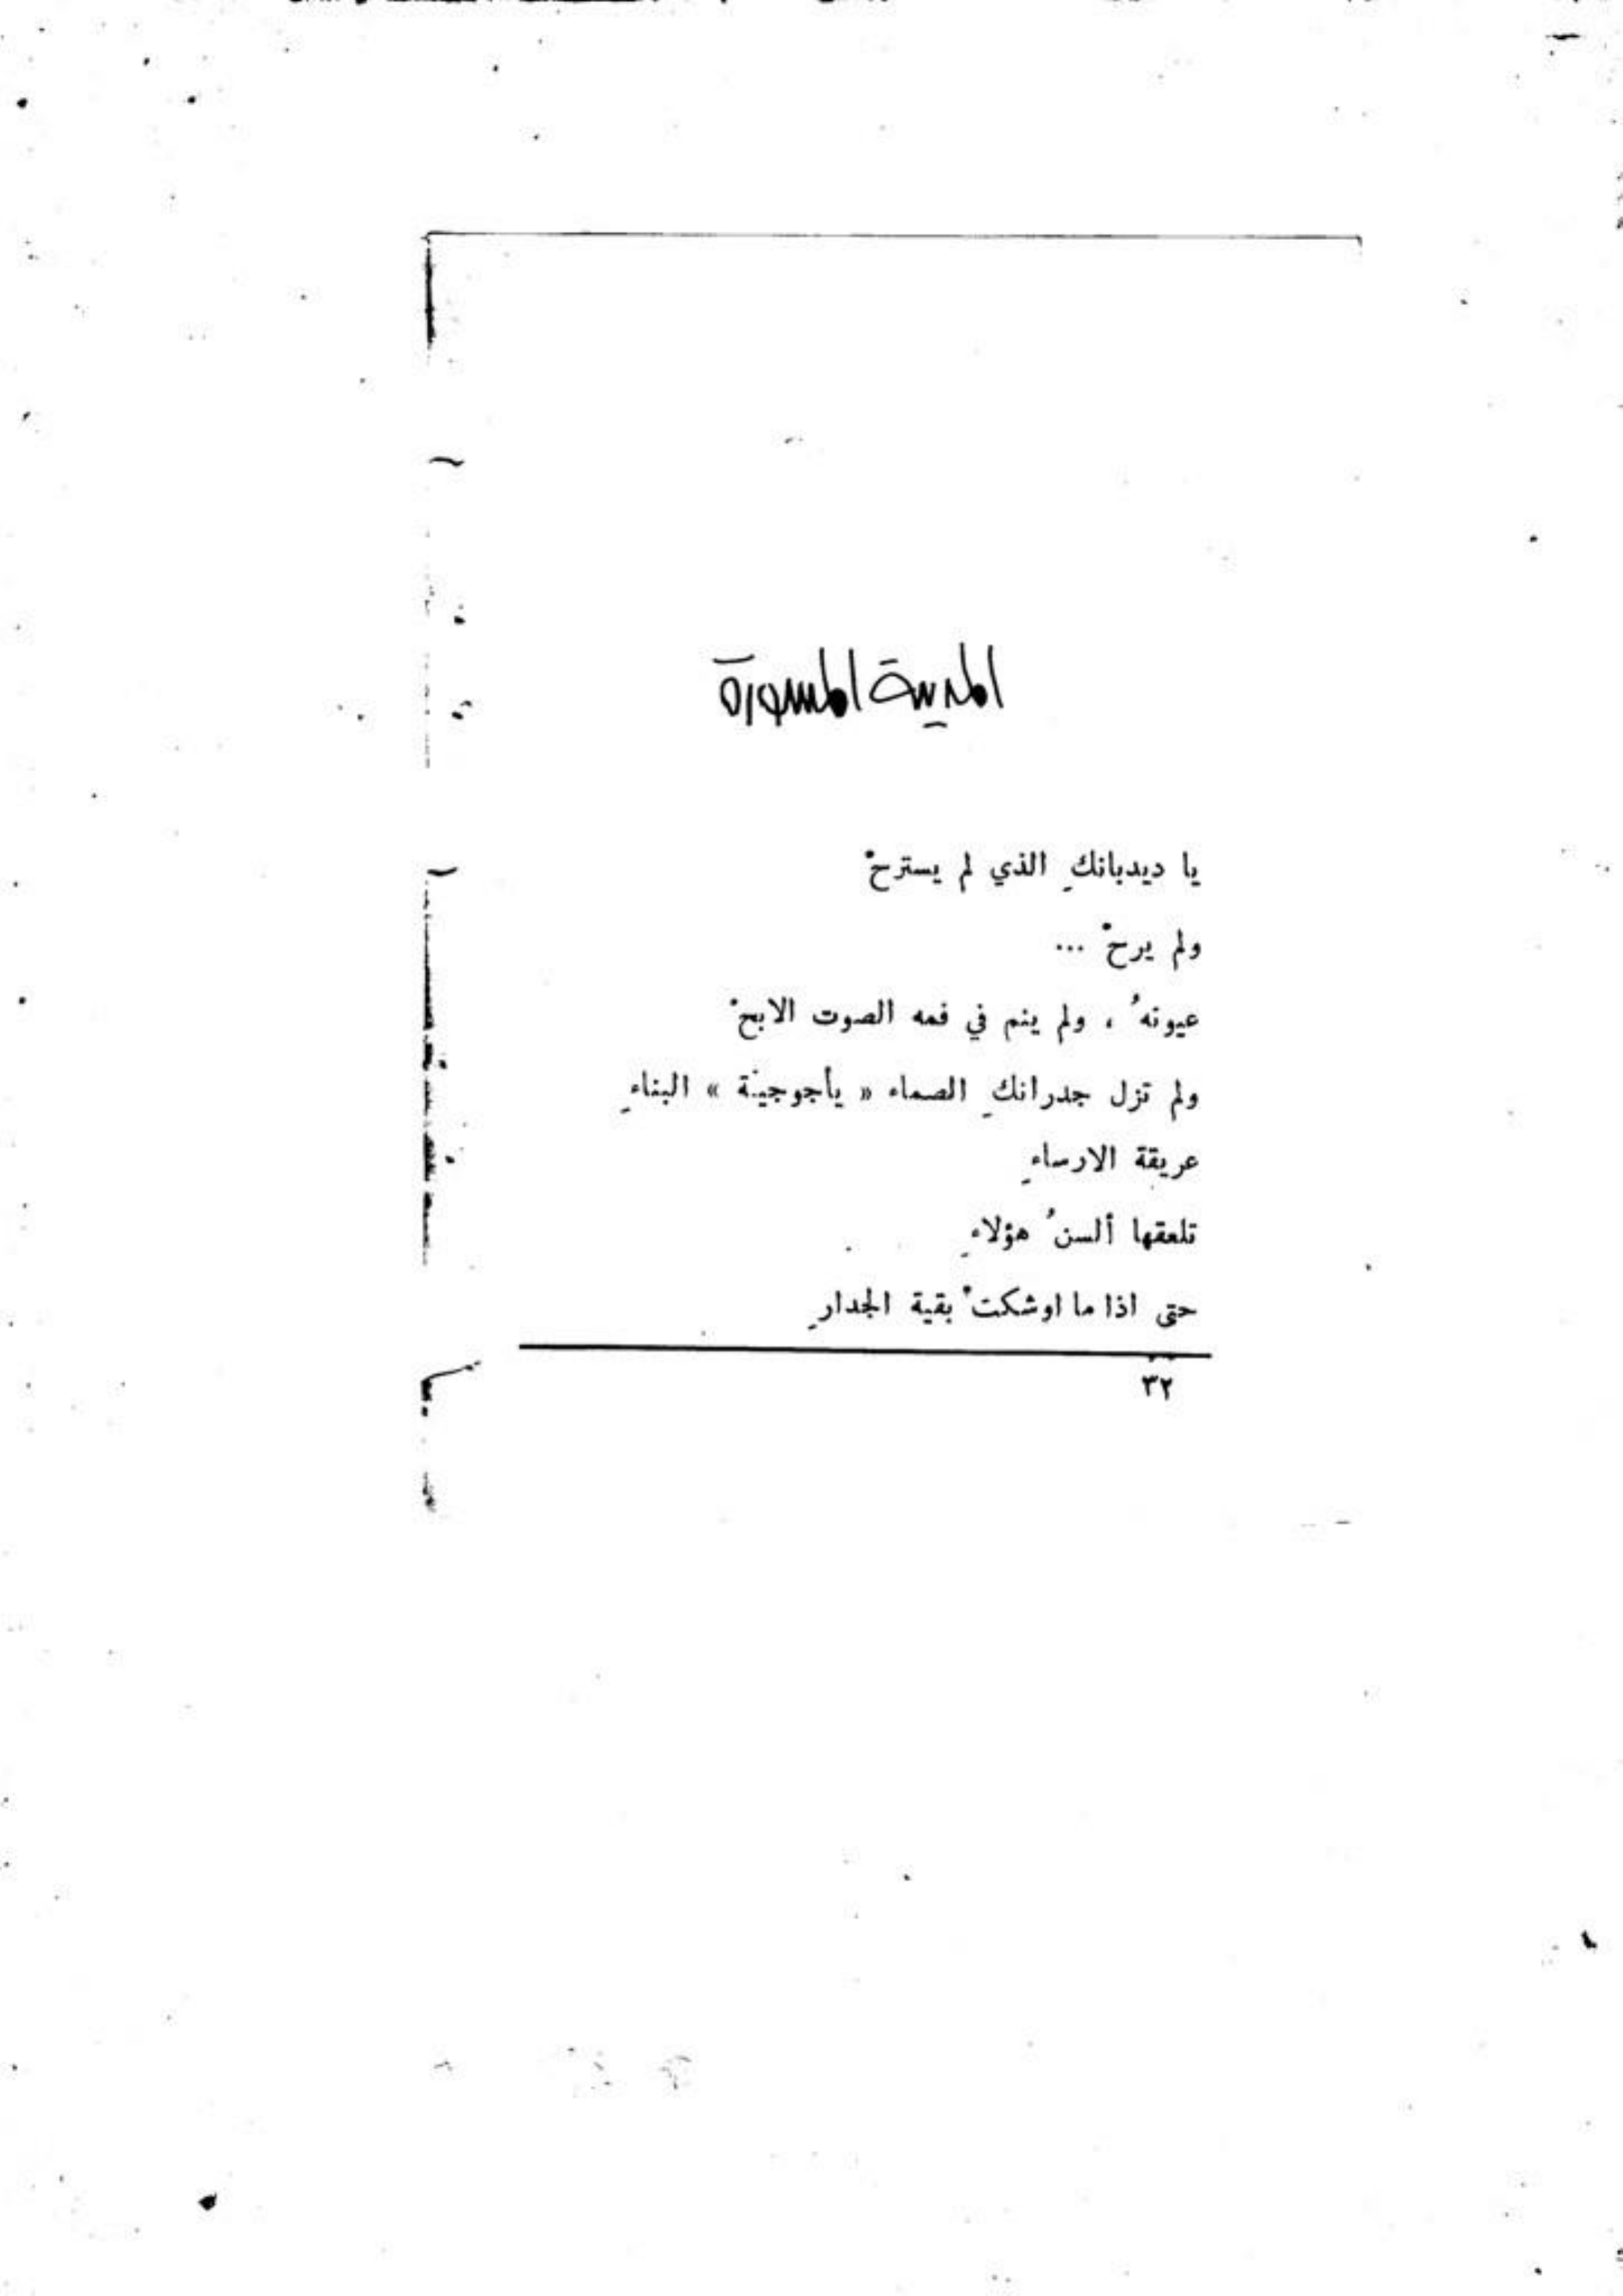 المدينة المسورة
يا ديدبانكِ الذي لم يسترحْ
ولم يرحْ ...
عيونهُ ، ولم ينم في فمه الصوت الابحْ
ولم تزل جدرانكِ الصماء « يأجوجيّة » البناءِ
عريقة الارساءِ
تلعقها ألسنُ هؤلاءِ
حتى اذا ما اوشكتْ بقية الجدارِ
٣٢